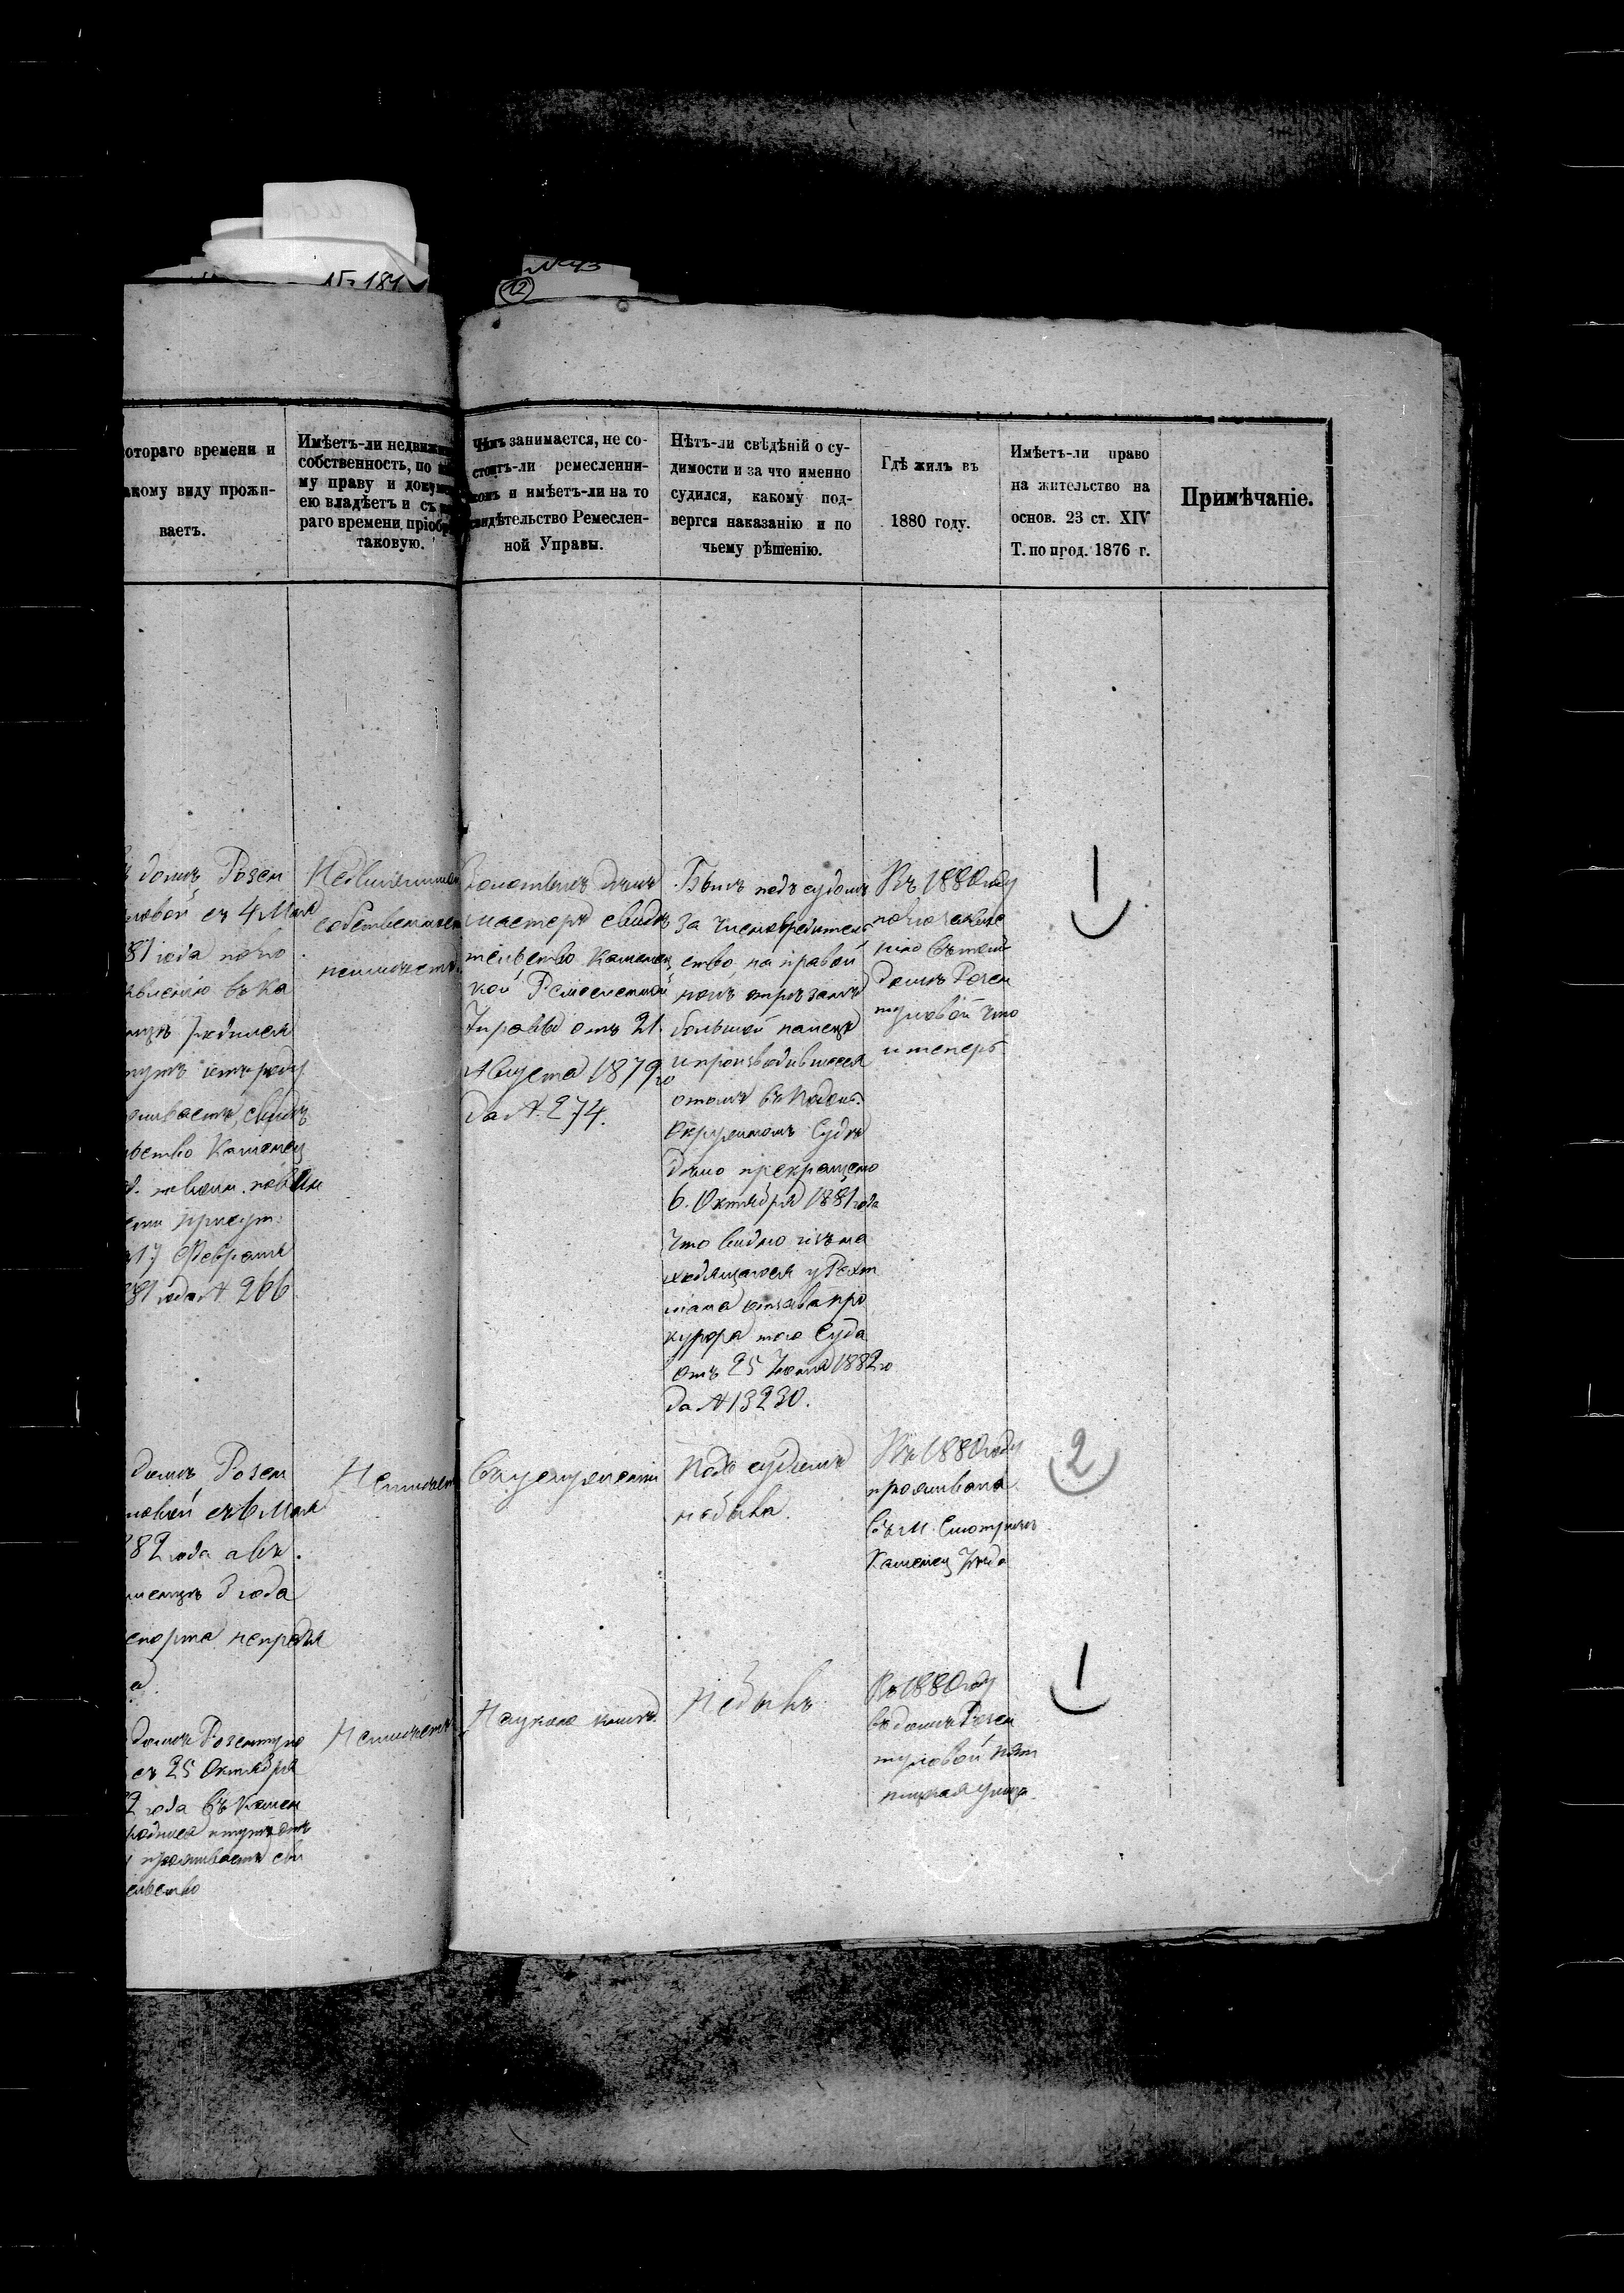 № 181
№ 43
12
отораго времени и
акому виду прожи-
ваетъ.
Имѣетъ-ли недвижи
собственность, по
му праву и докум
ею владѣетъ и съ
раго времени пріобр
таковую.
Чѣмъ занимается, не со-
стоитъ-ли ремесленни-
комъ и имѣетъ-ли на то
свидѣтельство Ремеслен-
ной Управы.
Нѣтъ-ли свѣдѣній о су-
димости и за что именно
судился, какому под-
вергся наказанію и по
чьему рѣшенію.
Гдѣ жилъ въ
1880 году.
Имѣетъ-ли право
на жительство на
основ. 23 ст. XIV
Т. по прод. 1876 г.
Примѣчаніе.
домѣ Розен
ловой съ 4 Мая
81 года по но
влению въ Ка
родился
тутъ
живаетъ, свидѣ
ьство Каменец
повин
присут.
17 Февраля
81 года № 266
Недвижимой
собственности
неимѣетъ.
Золотыхъ дѣлъ
мастеръ свидѣ
тельство Каменец
кой Ремесленной
Управы отъ 21
Августа 1879 го
да № 274.
Былъ подъ судомъ
за членовредитель
ство, на правой
ногѣ отрѣзанъ
большой палецъ
и производившееся
о томъ въ Подоль.
Окружномъ Судѣ
дѣло прекращено
6. Октября 1881 года
что видно изъ на
ходящагося у Рехт
мана отзыва про
курора того Суда
отъ 25 Іюня 1882 го
да № 13230.
Въ 1880 году
въ томъ
домѣ Розен
туловой что
и теперь
1
домѣ Розен
ловой съ 6 Мая
82 года а въ
менцѣ 3 года
спорта непредъя
а
Неимѣетъ
Подъ судомъ
не была.
Въ 1880 году
проживала
въ м. Смотричѣ
Каменец Уѣзда
2
домѣ Розентуло
съ 25 Октября
2 года въ Камен
родился и тутъ
проживаетъ сви
ельство
Неимѣетъ
Не былъ
Въ 1880 году
въ домѣ Розен
туловой Пят
ницкая улица
1